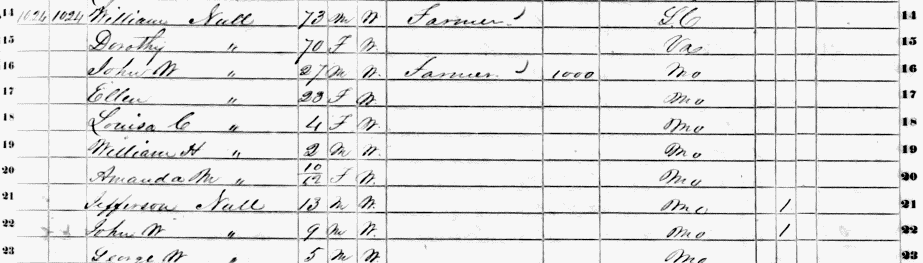 14 1024 1024 William Null 73 M W. Farmer S.C 14
15 Dorothy " 70 F W. Va 15
16 John W " 27 M W. Farmer 1000 Mo 16
17 Ellen " 23 F W. Mo 17
18 Louisa C " 4 F W. Mo 18
19 William H " 2 M W. Mo 19
20 Amanda M " 10/12 F W. Mo 20
21 Jefferson Null 13 M W. Mo 1 21
22 John W " 9 M W. Mo 1 22
23 George W " 5 M W. Mo 23